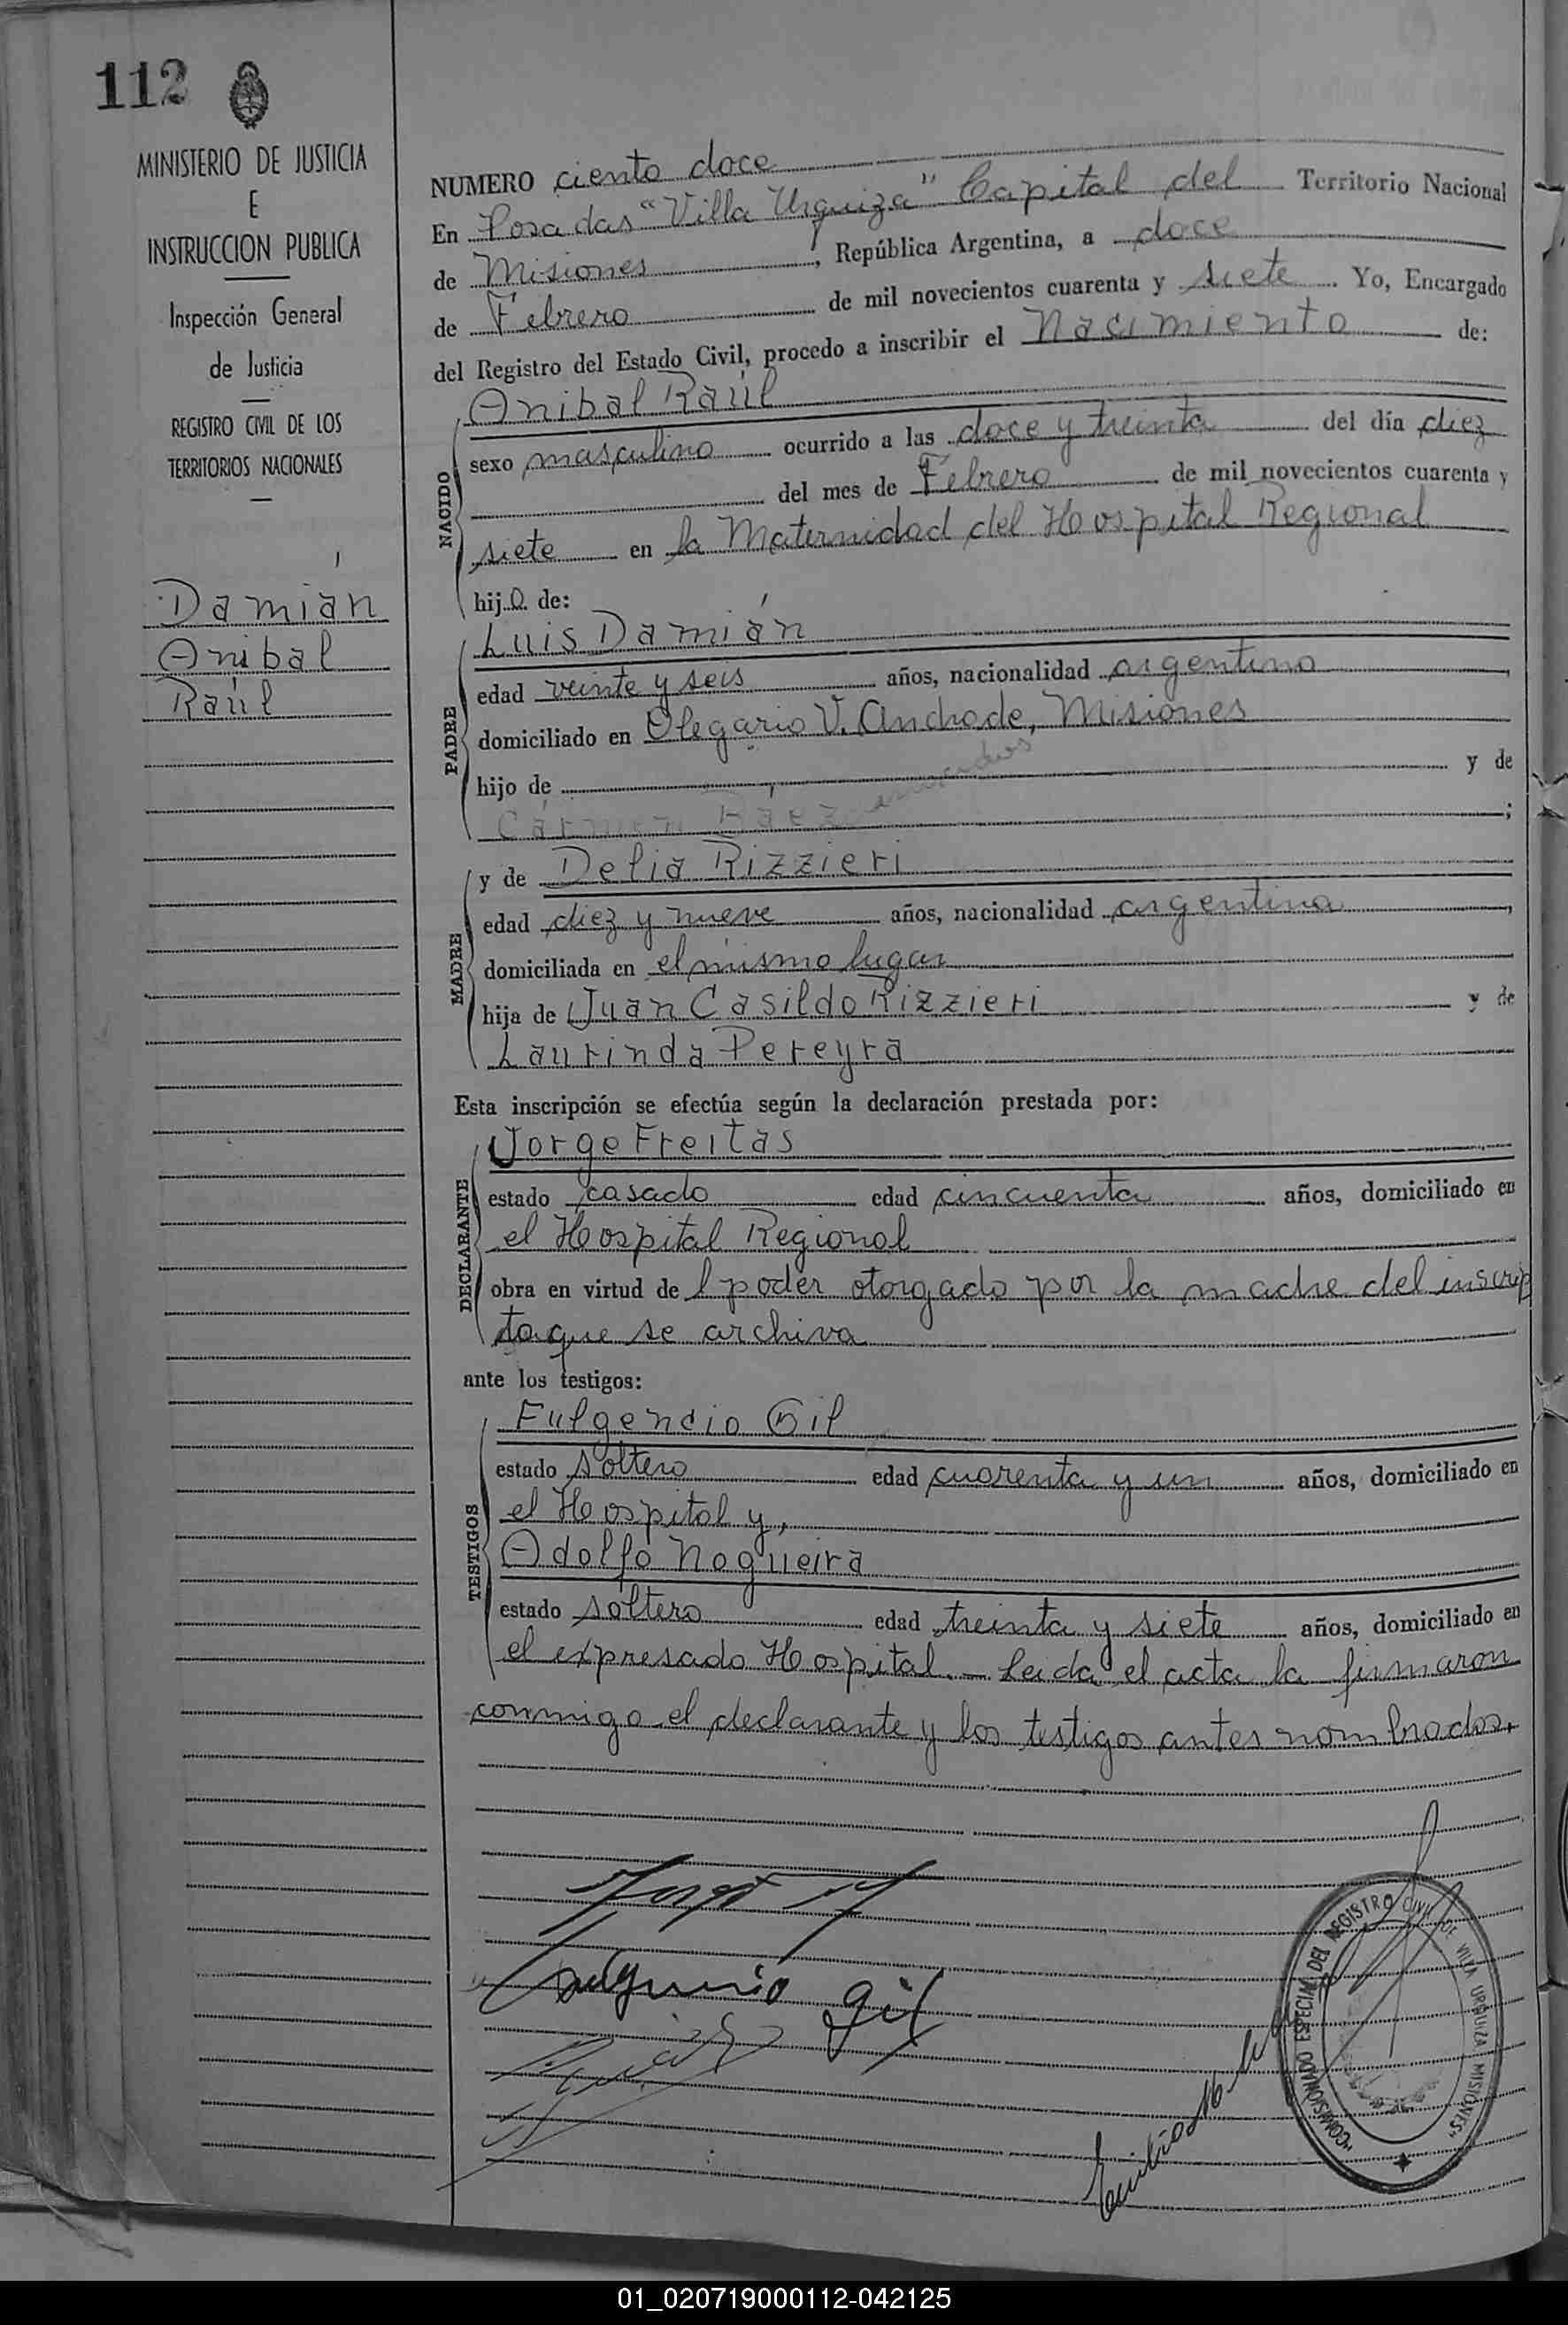 112
MINISTERIO DE JUSTICIA
E
INSTRUCCION PUBLICA
Inspección General
de Justicia
REGISTRO CIVIL DE LOS
TERRITORIOS NACIONALES
Damián
Anibal
Raúl
NUMERO ciento doce
En Posadas "Villa Urquiza" Capital del Territorio Nacional
de Misiones, República Argentina, a doce
de Febrero de mil novecientos cuarenta y siete. Yo, Encargado
del Registro del Estado Civil, procedo a inscribir el Nacimiento de:
NACIDO
Anibal Raúl
sexo masculino ocurrido a las doce y treinta del día diez
del mes de Febrero de mil novecientos cuarenta y
siete en la Maternidad del Hospital Regional
hijo de:
PADRE
Luis Damián
edad veinte y seis años, nacionalidad argentino
domiciliado en Olegario V. Andrade, Misiones
hijo de y de
Cármen Báez ;
MADRE
y de Delia Rizzieri
edad diez y nueve años, nacionalidad argentina,
domiciliada en el mismo lugar
hija de Juan Casildo Rizzieri y de
Laurinda Pereyra
Esta inscripción se efectúa según la declaración prestada por:
DECLARANTE
Jorge Freitas
estado casado edad cincuenta años, domiciliado en
el Hospital Regional
obra en virtud del poder otorgado por la madre del inscrip
to que se archiva
ante los testigos:
TESTIGOS
Fulgencio Gil
estado soltero edad cuarenta y un años, domiciliado en
el Hospital y,
Adolfo Nogueira
estado soltero edad treinta y siete años, domiciliado en
el expresado Hospital.- Leida el acta la firmaron
conmigo el declarante y los testigos antes nombrados.
Jorge
Fulgencio Gil
"COMISIONADO ESPECIAL DEL REGISTRO CIVIL DE VILLA URQUIZA MISIONES"
01_020719000112-042125